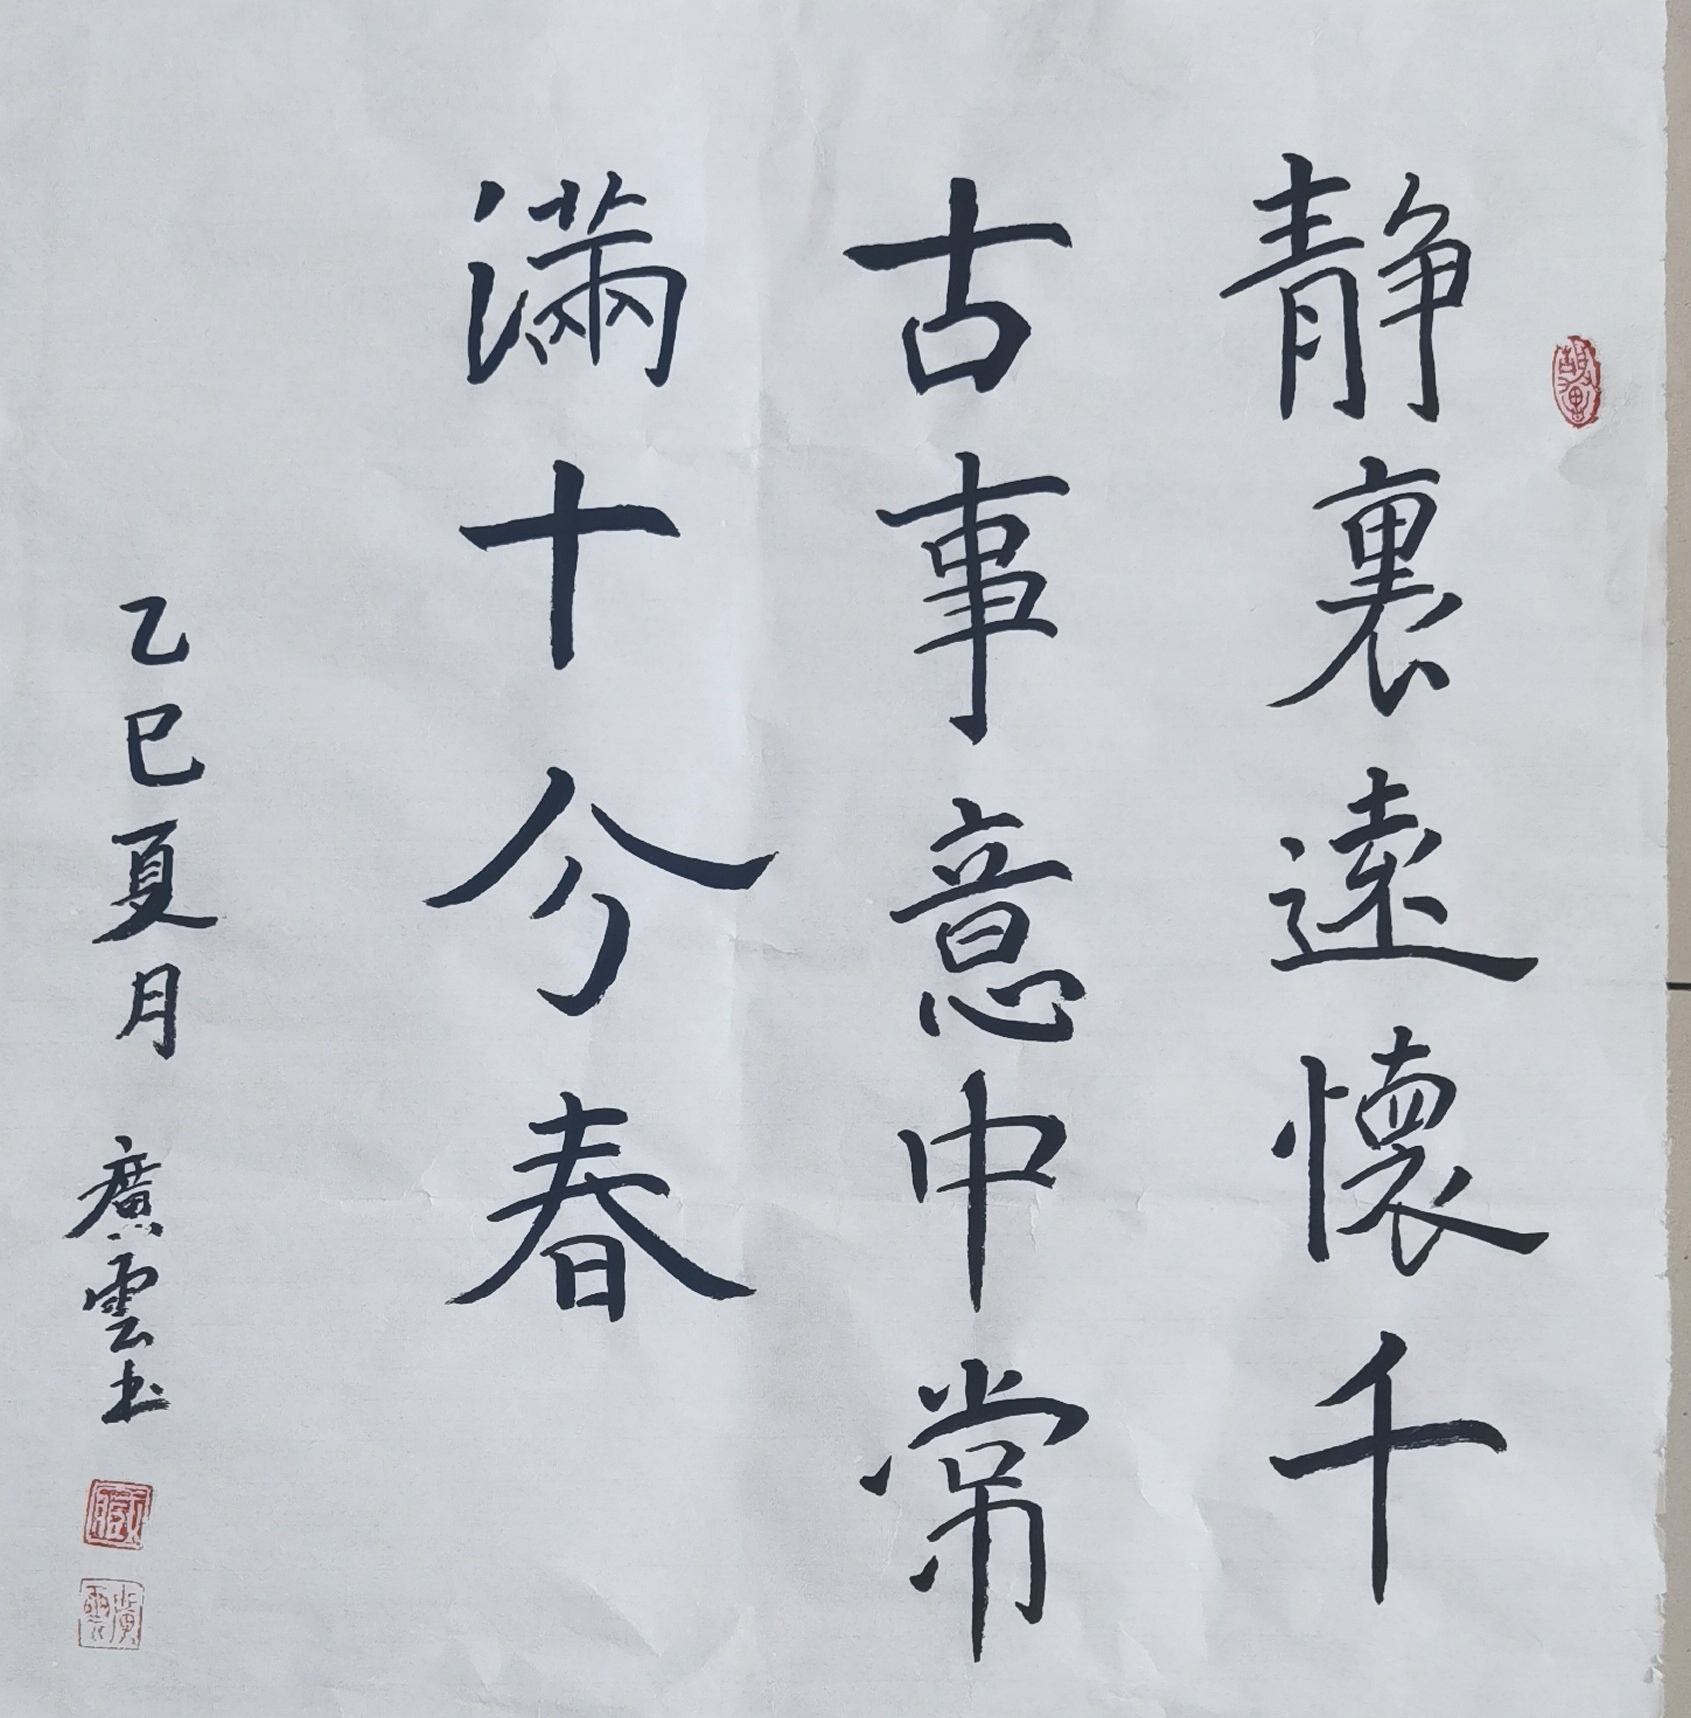 静裏遠懷千
古事意中常
滿十分春
乙巳夏月 廣雲书
臧
廣雲